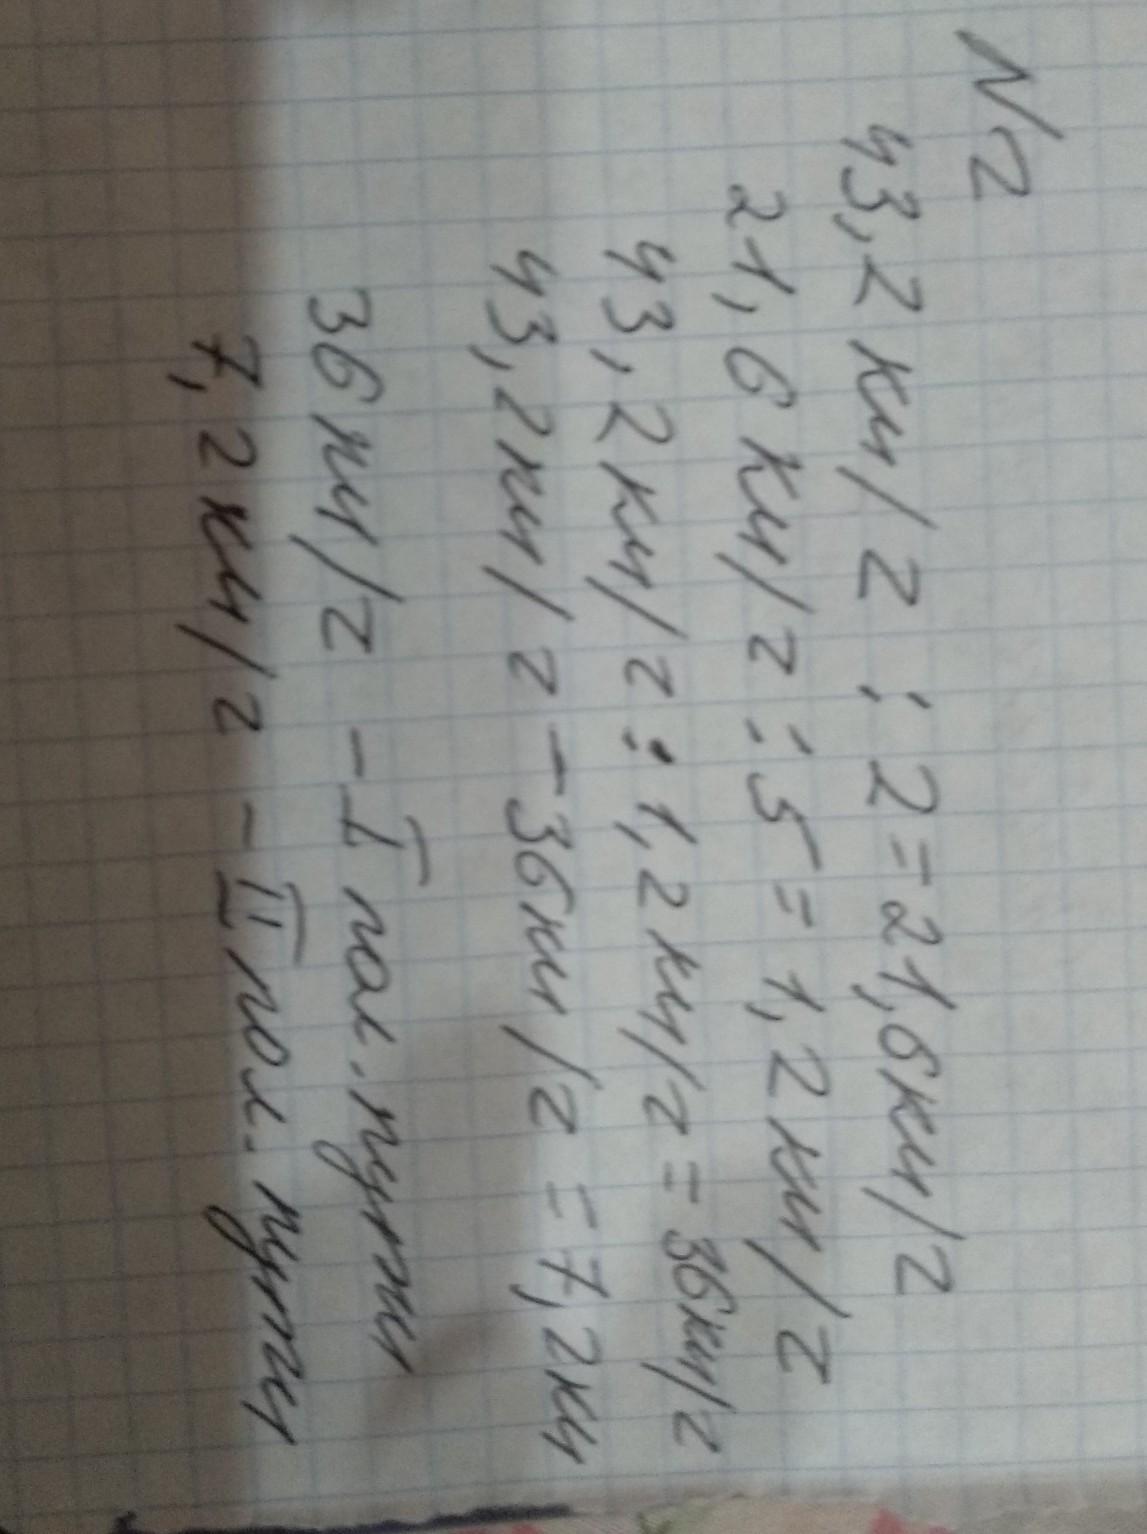 N2
43,2 км/г : 2 = 21,6 км/г
21,6 км/г : 5 = 1,2 км/г
43,2 км/г : 1,2 км/г = 36 км/г
43,2 км/г - 36 км/г = 7,2 км
36 км/г - I пол. пути
7,2 км/г - II пол. пути